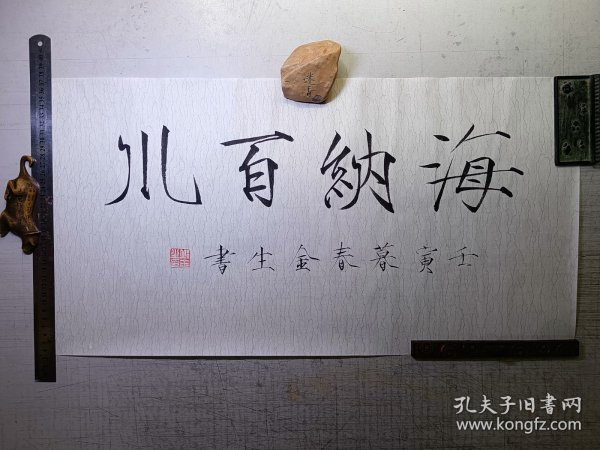 海納百川
壬寅暮春金生書
孔夫子旧书网
www.kongfz.com